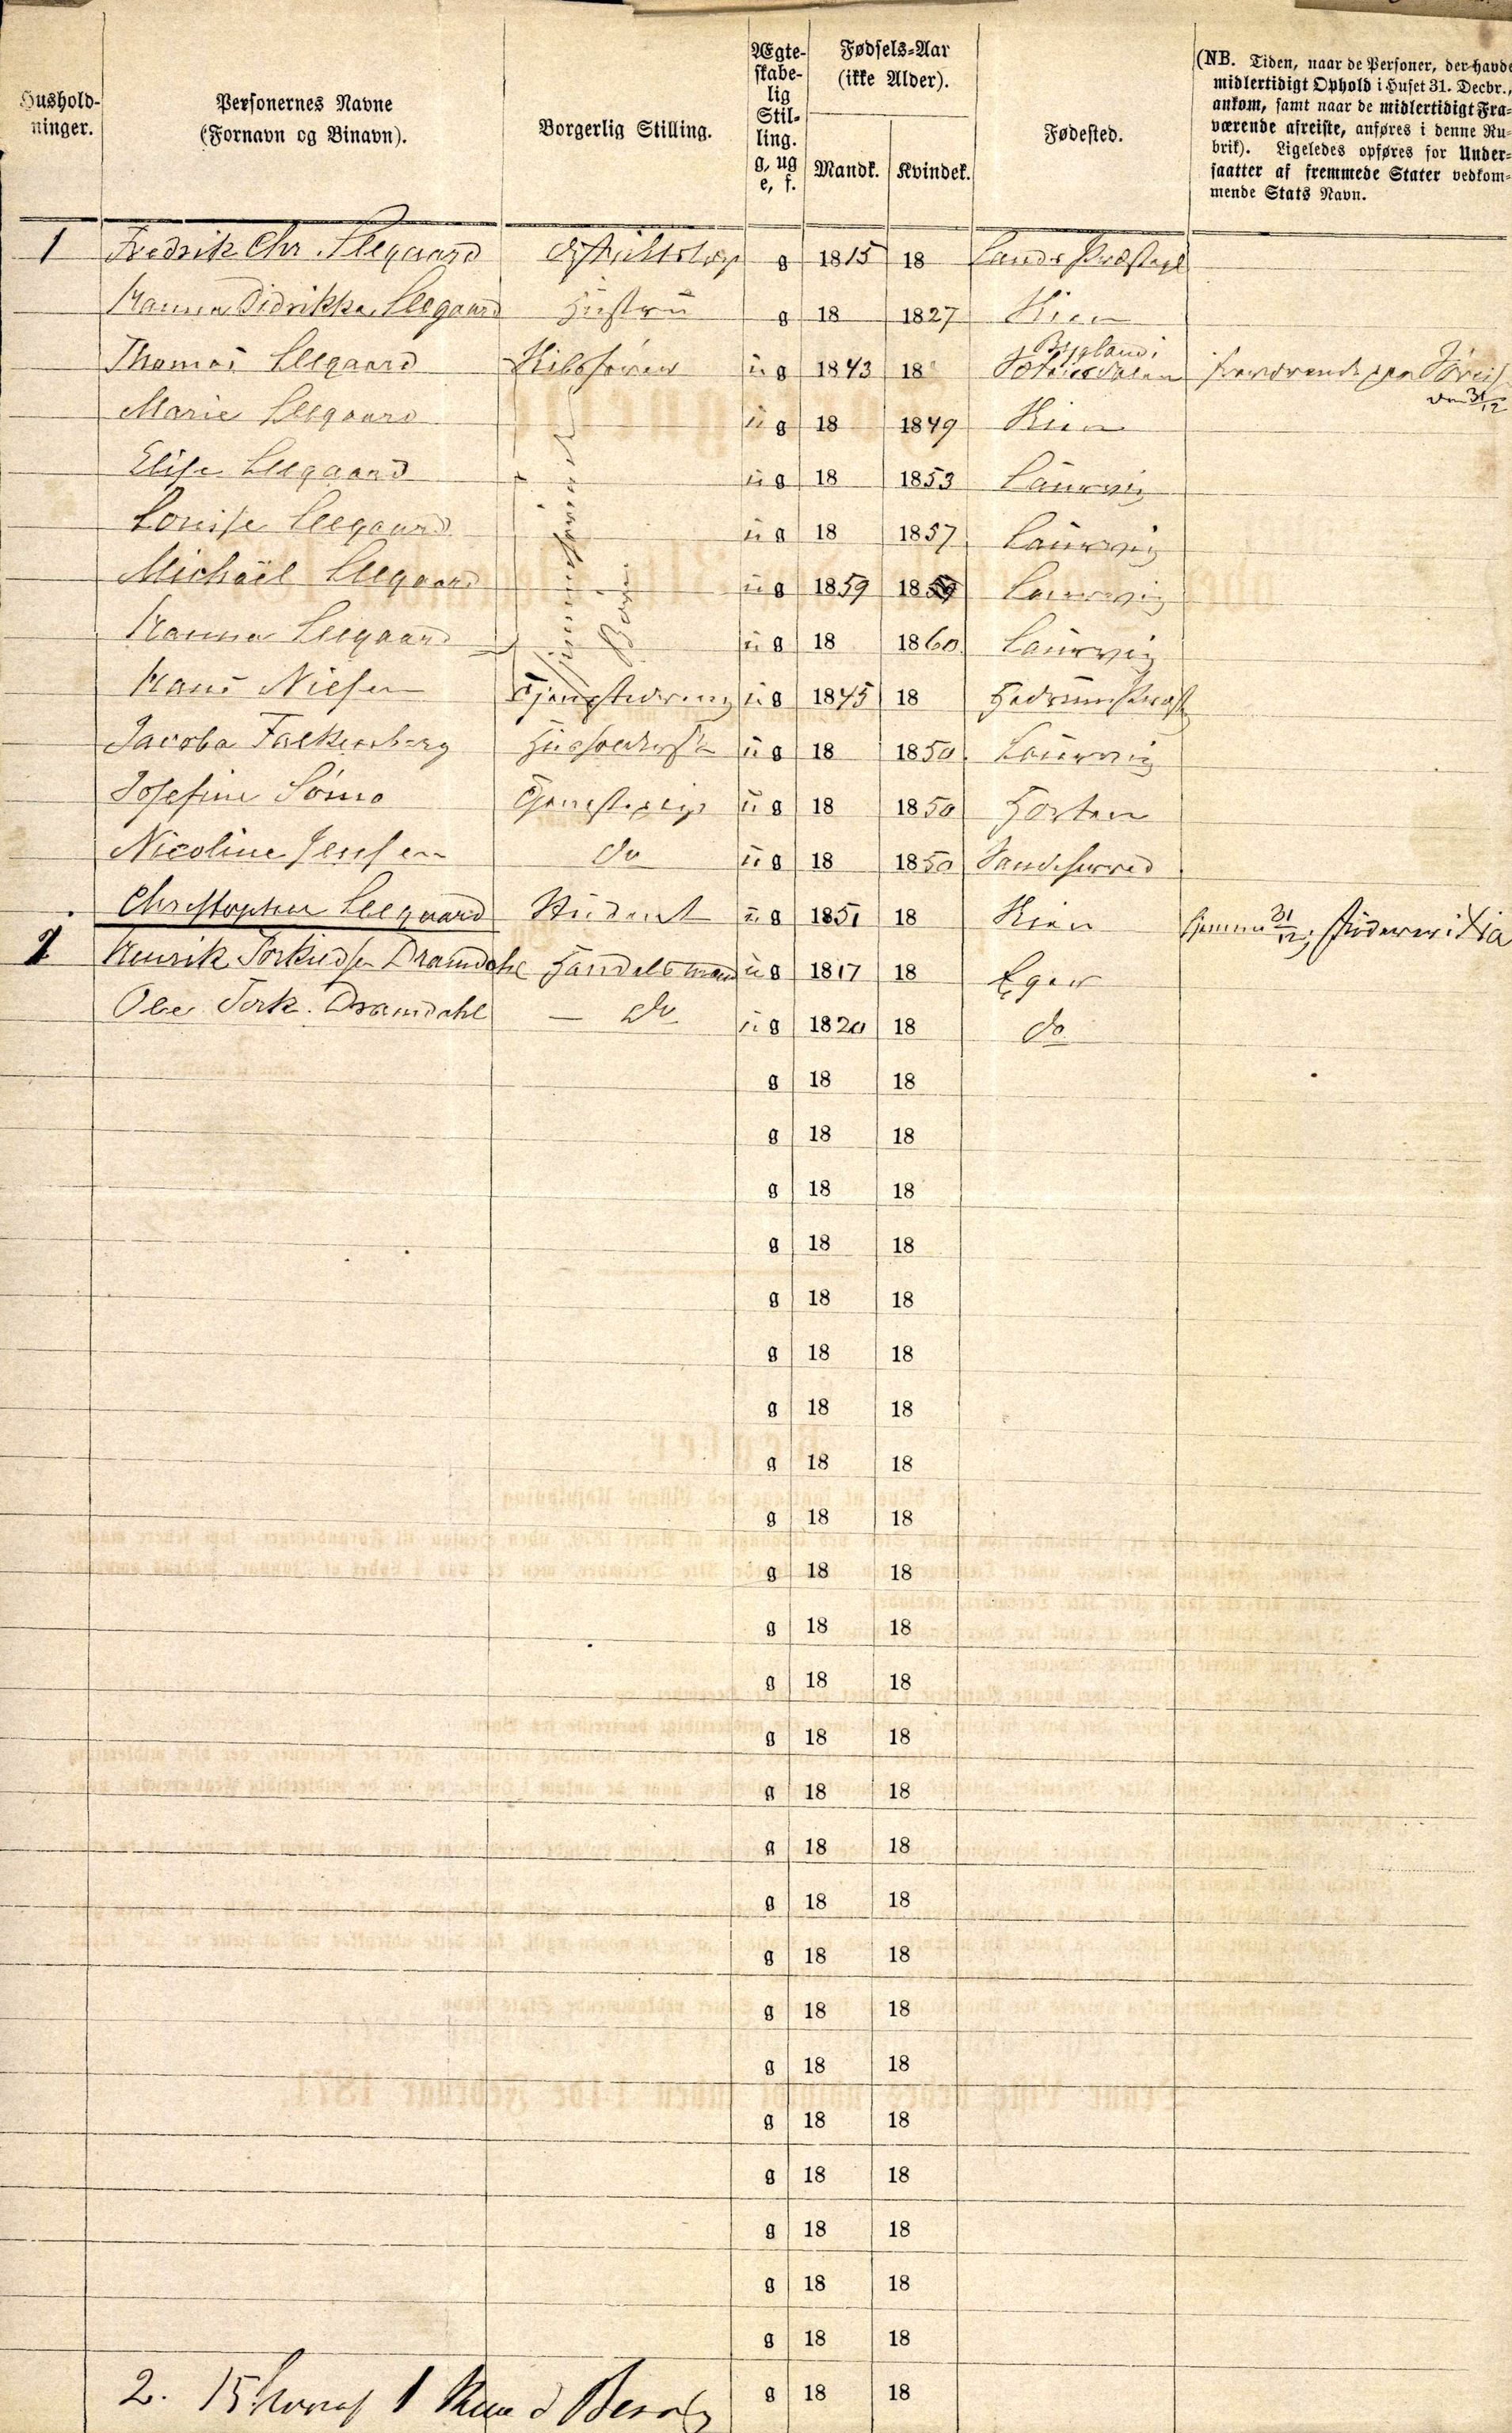 Hushold-
ninger.
Personernes Navne
(Fornavn og Binavn).
Borgerlig Stilling.
Ægte-
skabe-
lig
Stil-
ling.
g, ug
e, f.
Fødsels-Aar
(ikke Alder).
Mandk. Kvindek.
Fødested.
(NB. Tiden, naar de Personer, der havde
midlertidigt Ophold i Huset 31. Decbr.,
ankom, samt naar de midlertidigt Fra-
værende afreiste, anføres i denne Ru-
brik). Ligeledes opføres for Under-
saatter af fremmede Stater vedkom-
mende Stats Navn.
1 Fredrik Chr. Leegaard g 1815 18
Hanna Didrikke Leegaard Hustru g 18 1827
Thomas Leegaard Skibsfører ug 1843 18 Bygland i Sætersdalen fraværende paa
den 31/12
Marie Leegaard ug 18 1849
Elise Leegaard ug 18 1853 Laurvig
Louise Leegaard ug 18 1857 Laurvig
Michaël Leegaard ug 1859 18 Laurvig
Hanna Leegaard ug 18 1860 Laurvig
hjemmeværende
Børn
Hans Nielsen Tjenestedreng ug 1845 18
Jacoba Falkenberg Husholderske ug 18 1850 Laurvig
Josefine Sømo Tjenestepige ug 18 1850 Horten
Nicoline Jensen do ug 18 1850 Sandeherred
Christopher Leegaard Student ug 1851 18 hjemme 31/12, studerer i Xia
2 Henrik Torkildsen Dramdahl Handelsmand ug 1817 18 Eger
Ole Tork. Dramdahl — do ug 1820 18 do
g 18 18
g 18 18
g 18 18
g 18 18
g 18 18
g 18 18
g 18 18
g 18 18
g 18 18
g 18 18
g 18 18
g 18 18
g 18 18
g 18 18
g 18 18
g 18 18
g 18 18
g 18 18
g 18 18
g 18 18
g 18 18
g 18 18
g 18 18
g 18 18
g 18 18
2. 15 1